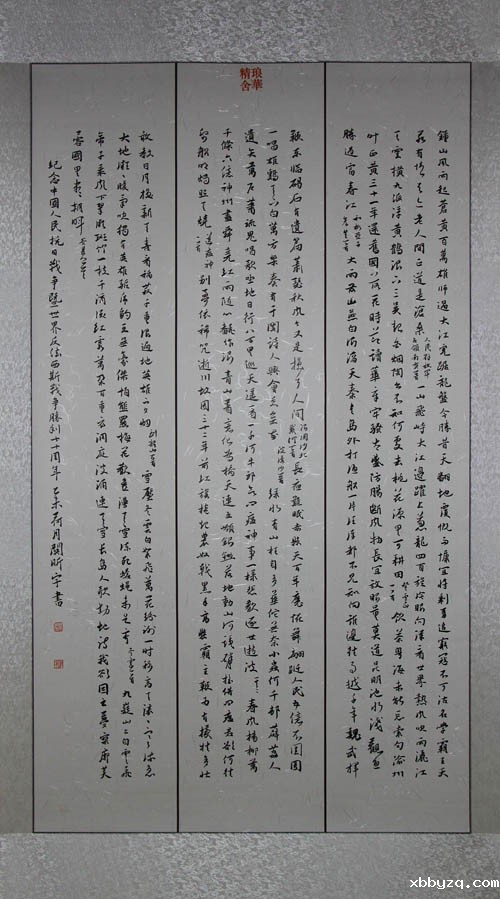 琅華
精舍
鍾山風雨起蒼黄百萬雄師過大江虎踞龍盤今勝昔天翻地覆慨而慷宜將剩勇追窮寇不可沽名學霸王天
若有情天亦老人間正道是滄桑人民解放軍占領南京一首一山飛峙大江邊躍上葱蘢四百旋冷眼向洋看世界熱風吹雨灑江
天雲橫九派浮黄鶴浪下三吴起白煙陶令不知何處去桃花源裏可耕田登廬山一首飲茶粤海未能忘索句渝州
葉正黄三十一年還舊國落花時節讀華章牢騷太盛防腸斷風物長宜放眼量莫道昆明池水淺觀魚
勝過富春江和柳亞子先生一首大雨落幽燕白浪滔天秦皇島外打漁船一片汪洋都不見知向誰邊往事越千年魏武揮
鞭東臨碣石有遺篇蕭瑟秋風今又是換了人間浪淘沙北戴河一首長夜難明赤縣天百年魔怪舞翩躚人民五億不團圓
一唱雄鷄天下白萬方樂奏有于闐詩人興會更無前浣溪沙一首緑水青山枉自多華佗無奈小蟲何千邨薜荔人
遺矢萬户蕭疏鬼唱歌坐地日行八萬里巡天遥看一千河牛郎欲問瘟神事一樣悲歡逐逝波其二春風楊柳萬
千條六億神州盡舜堯紅雨隨心翻作浪青山着意化爲橋天連五嶺銀鋤落地動山河鐵臂摇借問瘟君欲何往
紙船明燭照天燒送瘟神二首别夢依稀咒逝川故園三十二年前紅旗捲起農奴戟黑手高懸霸主鞭爲有犧牲多壯志
敢教日月換新天喜看稻菽千重浪遍地英雄下夕煙到韶山一首雪壓冬雲白絮飛萬花紛謝一時稀高天滚滚寒流急
大地微微暖氣吹獨有英雄驅虎豹更無豪傑怕熊羆梅花歡喜漫天雪凍死蒼蠅未足奇冬雲一首九嶷山上白雲飛
帝子乘風下翠微斑竹一枝千滴泪紅霞萬朵百重衣洞庭波涌連天雪長島人歌動地詩我欲因之夢寥廓芙
蓉國裏盡朝暉答友人一首
紀念中國人民抗日戰争暨世界反法西斯戰争勝利七十周年乙未荷月關昕宇書
xbbyzq.com